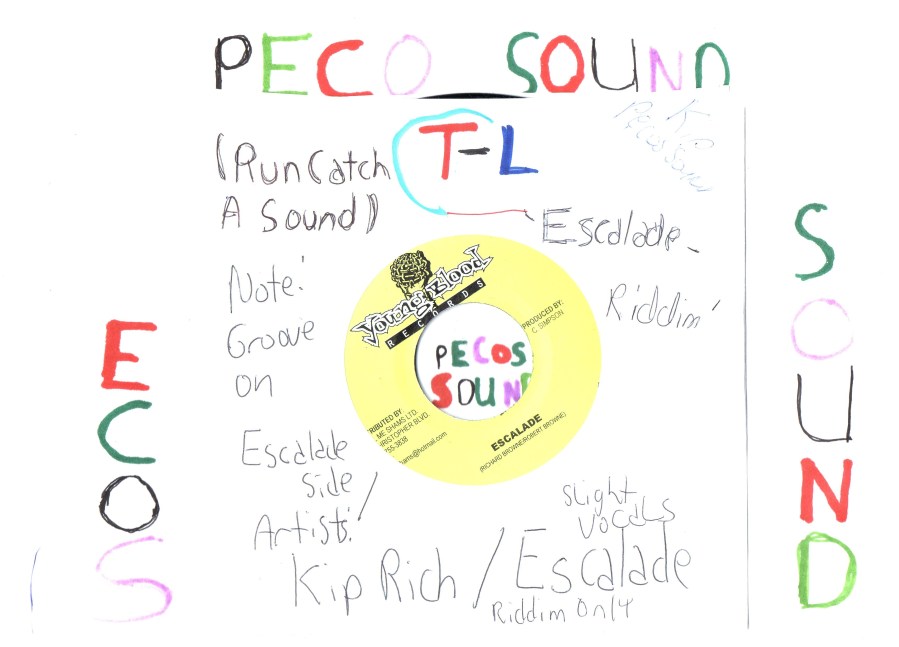 PECO SOUND
T-L
(Run Catch
A Sound)
K
Pecos Sound
Escalade
Riddim
Note:
Groove
on
Escalade
side
Artists:
Young Blood
RECORDS
PRODUCED BY:
C. SIMPSON
PECOS
SOUND
RIBUTED BY
ME SHAMS LTD.
RISTOPHER BLVD.
755-3838
hams@hotmail.com
ESCALADE
(RICHARD BROWNE/ROBERT BROWNE)
slight
vocals
Kip Rich / Escalade
Riddim Only
ECOS
SOUND